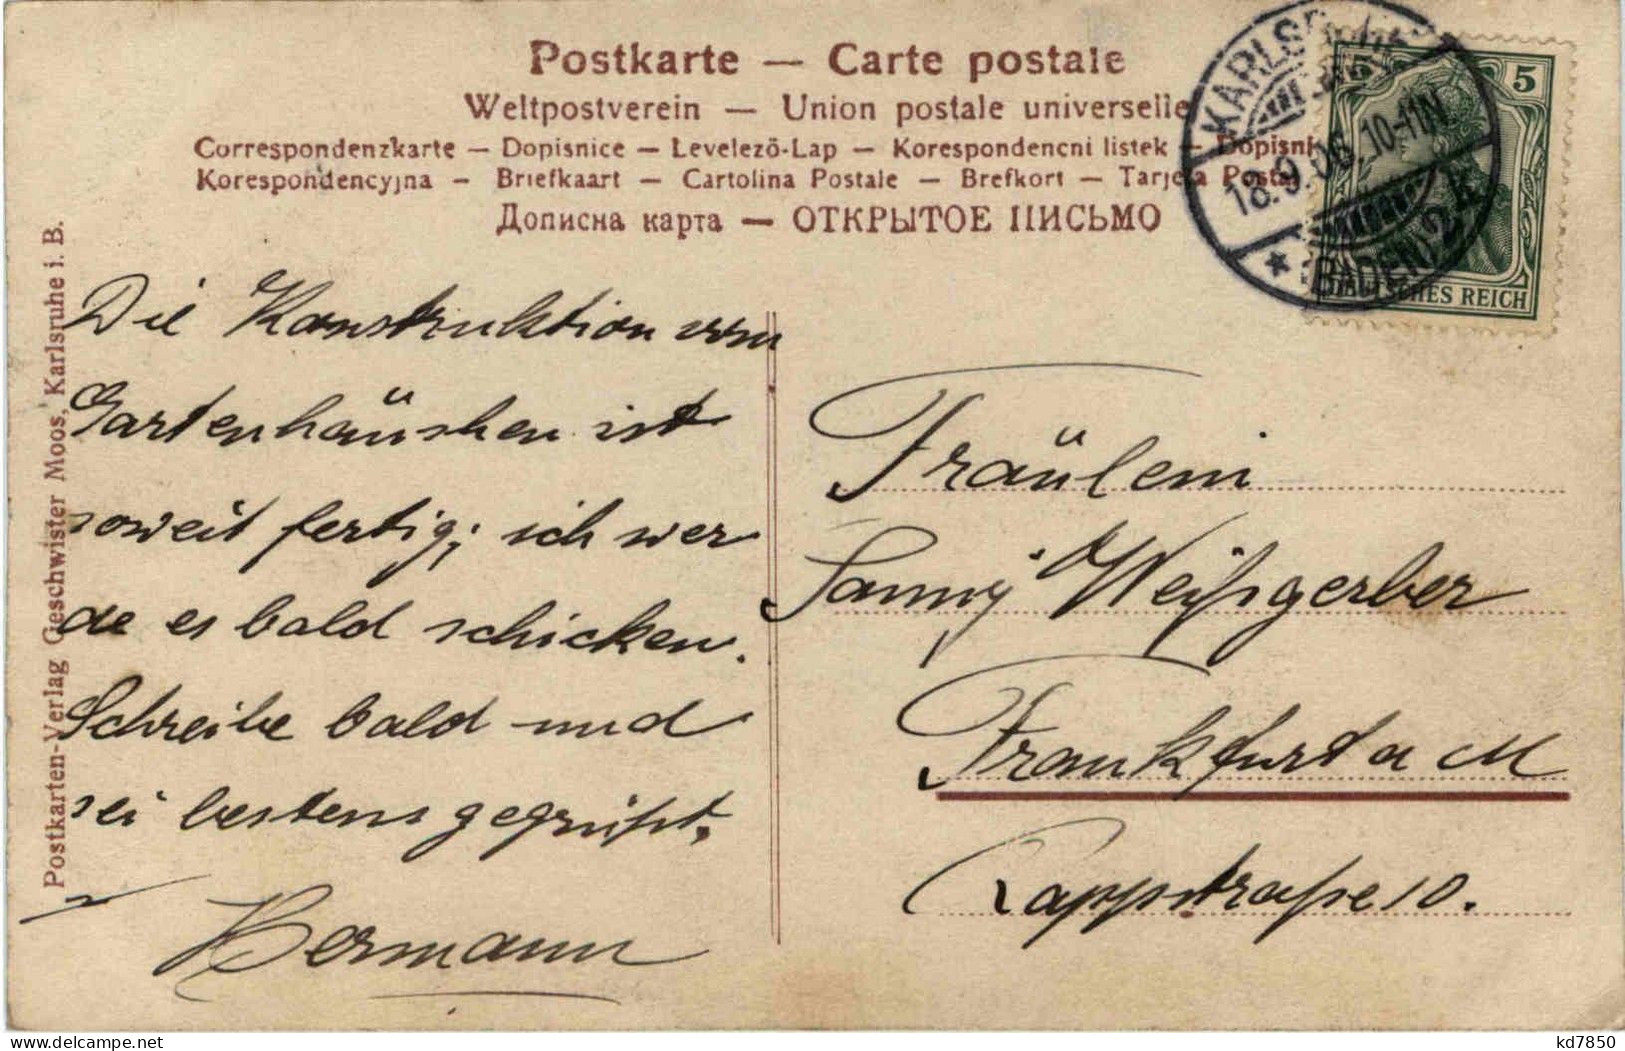 Postkarte — Carte postale
Weltpostverein — Union postale universelle
Correspondenzkarte — Dopisnice — Levelező-Lap — Korespondencni listek — Dopisni
Korespondencyjna — Briefkaart — Cartolina Postale — Brefkort — Tarjeta Postal
Дописна карта — ОТКРЫТОЕ ПИСЬМО
KARLSRUHE
18.9.06. 10-11N.
(BADEN) 2k
5 5
DEUTSCHES REICH
Postkarten-Verlag Geschwister Moos, Karlsruhe i. B.
Die Konstruktion vom
Gartenhäuschen ist
soweit fertig; ich wer
de es bald schicken.
Schreibe bald und
sei bestens gegrüßt.
Hermann
Fräulein
Fanny Weißgerber
Frankfurt a M
Rappstraße 10.
kd7850